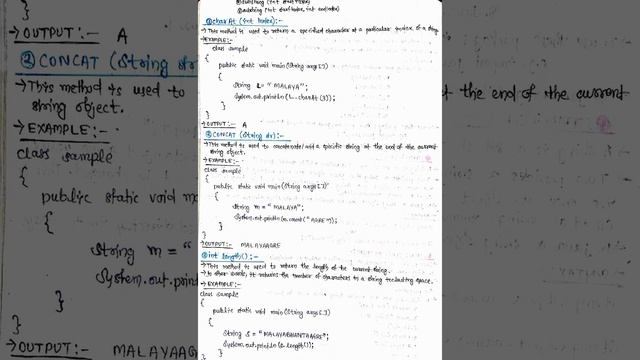 ⑨ substring (int start index)
⑩ substring (int start index, int end index)
① charAt (int Index):-
→ This method is used to return a specified character at a particular index of a string.
→ EXAMPLE:-
class sample
{
public static void main(String args[])
{
String L = "MALAYA";
System.out.println(L.charAt(3));
}
}
→ OUTPUT:- A
② CONCAT (String str):-
→ This method is used to concatenate/add a specific string at the end of the current
string object.
→ EXAMPLE:-
class sample
{
public static void main(String args[])
{
String m = "MALAYA";
System.out.println(m.concat("AGRE"));
}
}
→ OUTPUT:- MALAYAAGRE
③ int length():-
→ This method is used to return the length of the current string.
→ In other words, it returns the number of characters in a string including space.
→ EXAMPLE:-
class sample
{
public static void main(String args[])
{
String s = "MALAYABHANTHAAGRE";
System.out.println(s.length());
}